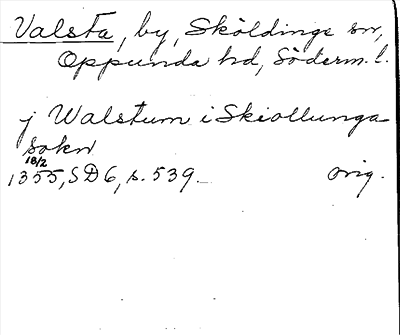 Valsta, by, Sköldinge sn,
Oppunda hd, Söderm. l.
j Walstum i Skiollunga
sokn
18/2
1355, SD 6, s. 539.
orig.